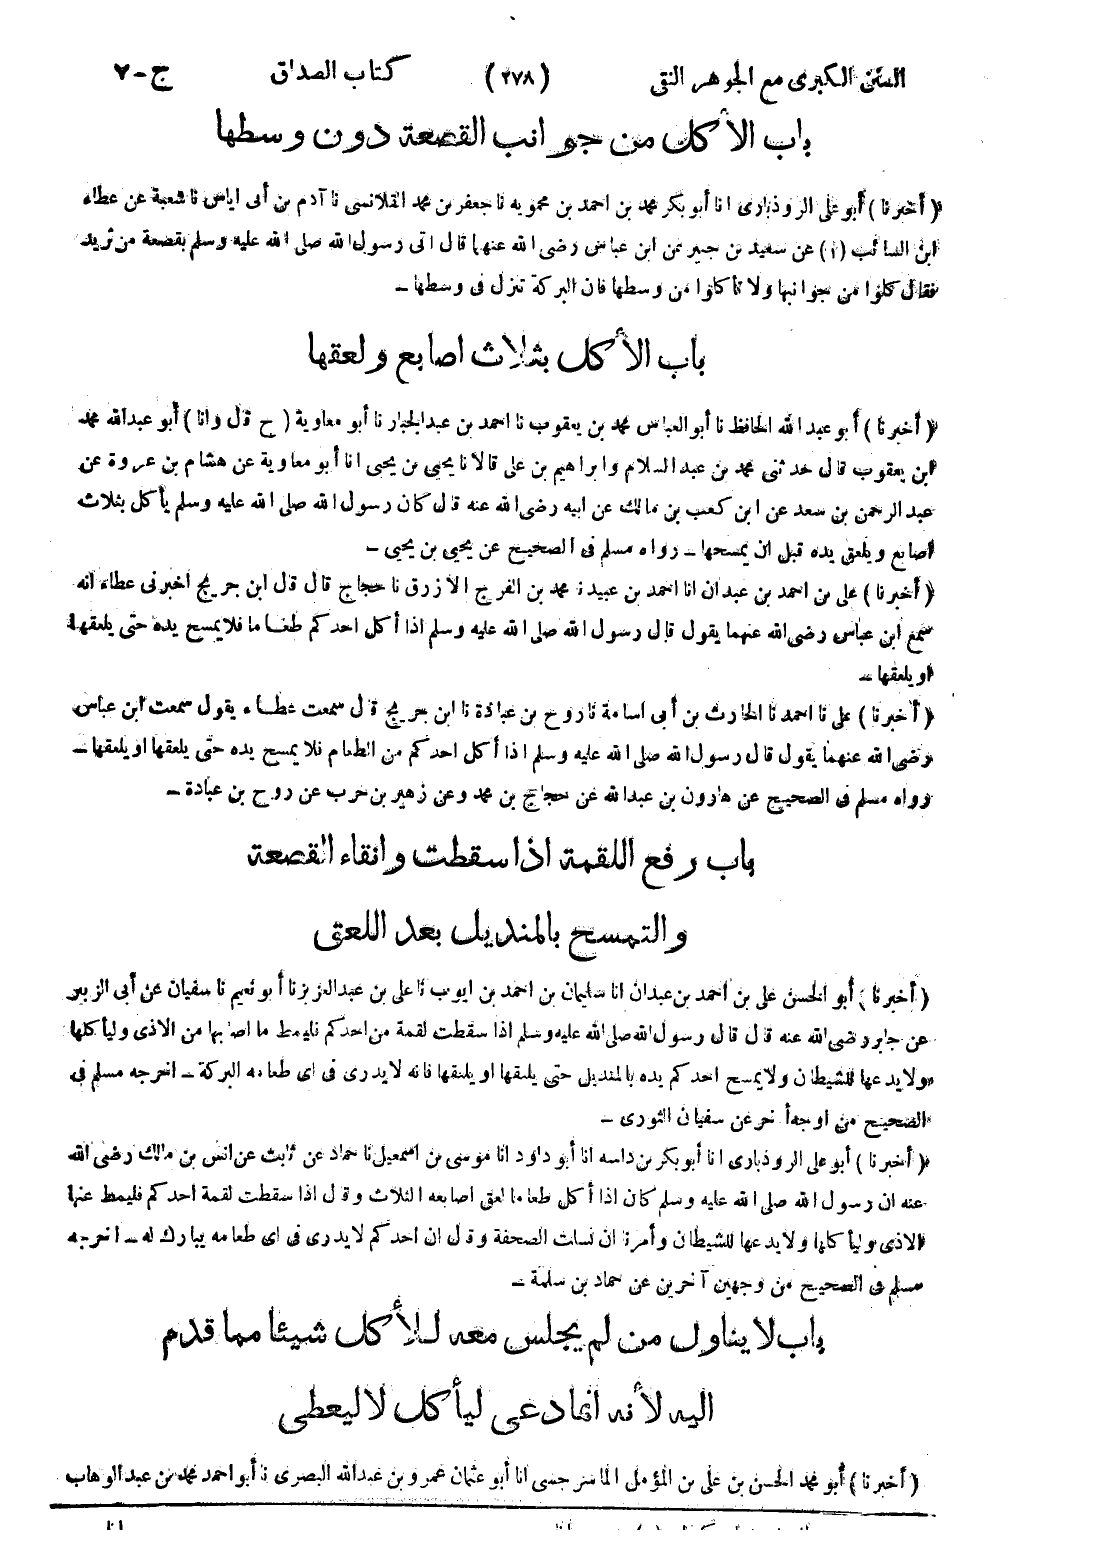 السنن الكبرى مع الجوهر النقى (٢٧٨) كتاب الصداق ج-٧
باب الأكل من جوانب القصعة دون وسطها
(أخبرنا) أبو على الروذبارى انا أبو بكر محمد بن احمد بن محمويه نا جعفر بن محمد القلانسى نا آدم بن أبى اياس نا شعبة عن عطاء
ابن السائب (١) عن سعيد بن جبير عن ابن عباس رضى الله عنهما قال اتى رسول الله صلى الله عليه وسلم بقصعة من ثريد
فقال كلوا من جوانبها ولا تأكلوا من وسطها فان البركة تنزل فى وسطها –
باب الأكل بثلاث اصابع ولعقها
(أخبرنا) أبو عبد الله الحافظ نا أبو العباس محمد بن يعقوب نا احمد بن عبد الجبار نا أبو معاوية (ح قال وانا) أبو عبد الله محمد
ابن يعقوب قال حدثنى محمد بن عبد السلام وابراهيم بن على قالا نا يحيى بن يحيى انا أبو معاوية عن هشام بن عروة عن
عبد الرحمن بن سعد عن ابن كعب بن مالك عن ابيه رضى الله عنه قال كان رسول الله صلى الله عليه وسلم يأكل بثلاث
اصابع ويلعق يده قبل ان يمسحها – رواه مسلم فى الصحيح عن يحيى بن يحيى –
(أخبرنا) على بن احمد بن عبدان انا احمد بن عبيد نا محمد بن الفرج الازرق نا حجاج قال قال ابن جريج اخبرنى عطاء انه
سمع ابن عباس رضى الله عنهما يقول قال رسول الله صلى الله عليه وسلم اذا أكل احدكم طعاما فلا يمسح يده حتى يلعقها
او يلعقها –
(أخبرنا) على نا احمد نا الحارث بن أبى اسامة نا روح بن عبادة نا ابن جريج قال سمعت عطاء يقول سمعت ابن عباس
رضى الله عنهما يقول قال رسول الله صلى الله عليه وسلم اذا أكل احدكم من الطعام فلا يمسح يده حتى يلعقها او يلعقها –
رواه مسلم فى الصحيح عن هارون بن عبد الله عن حجاج بن محمد وعن زهير بن حرب عن روح بن عبادة –
باب رفع اللقمة اذا سقطت وانقاء القصعة
والتمسح بالمنديل بعد اللعق
(أخبرنا) أبو الحسن على بن احمد بن عبدان انا سليمان بن احمد بن ايوب نا على بن عبد العزيز نا أبو نعيم نا سفيان عن أبى الزبير
عن جابر رضى الله عنه قال قال رسول الله صلى الله عليه وسلم اذا سقطت لقمة من احدكم فليمط ما اصابها من الاذى وليأكلها
ولا يدعها للشيطان ولا يمسح احدكم يده بالمنديل حتى يلعقها او يلعقها فانه لا يدرى فى اى طعامه البركة – اخرجه مسلم فى
الصحيح من اوجه أخر عن سفيان الثورى –
(أخبرنا) أبو على الروذبارى انا أبو بكر بن داسه انا أبو داود انا موسى بن اسمعيل نا حماد عن ثابت عن انس بن مالك رضى الله
عنه ان رسول الله صلى الله عليه وسلم كان اذا أكل طعاما لعق اصابعه الثلاث وقال اذا سقطت لقمة احدكم فليمط عنها
الاذى وليأكلها ولا يدعها للشيطان وأمرنا ان نسلت الصحفة وقال ان احدكم لا يدرى فى اى طعامه يبارك له – اخرجه
مسلم فى الصحيح من وجهين آخرين عن حماد بن سلمة –
باب لا يناول من لم يجلس معه للأكل شيئا مما قدم
اليه لأنه انما دعى ليأكل لا ليعطى
(أخبرنا) أبو محمد الحسن بن على بن المؤمل الماسرجسى انا أبو عثمان عمرو بن عبد الله البصرى نا أبو احمد محمد بن عبد الوهاب
انا